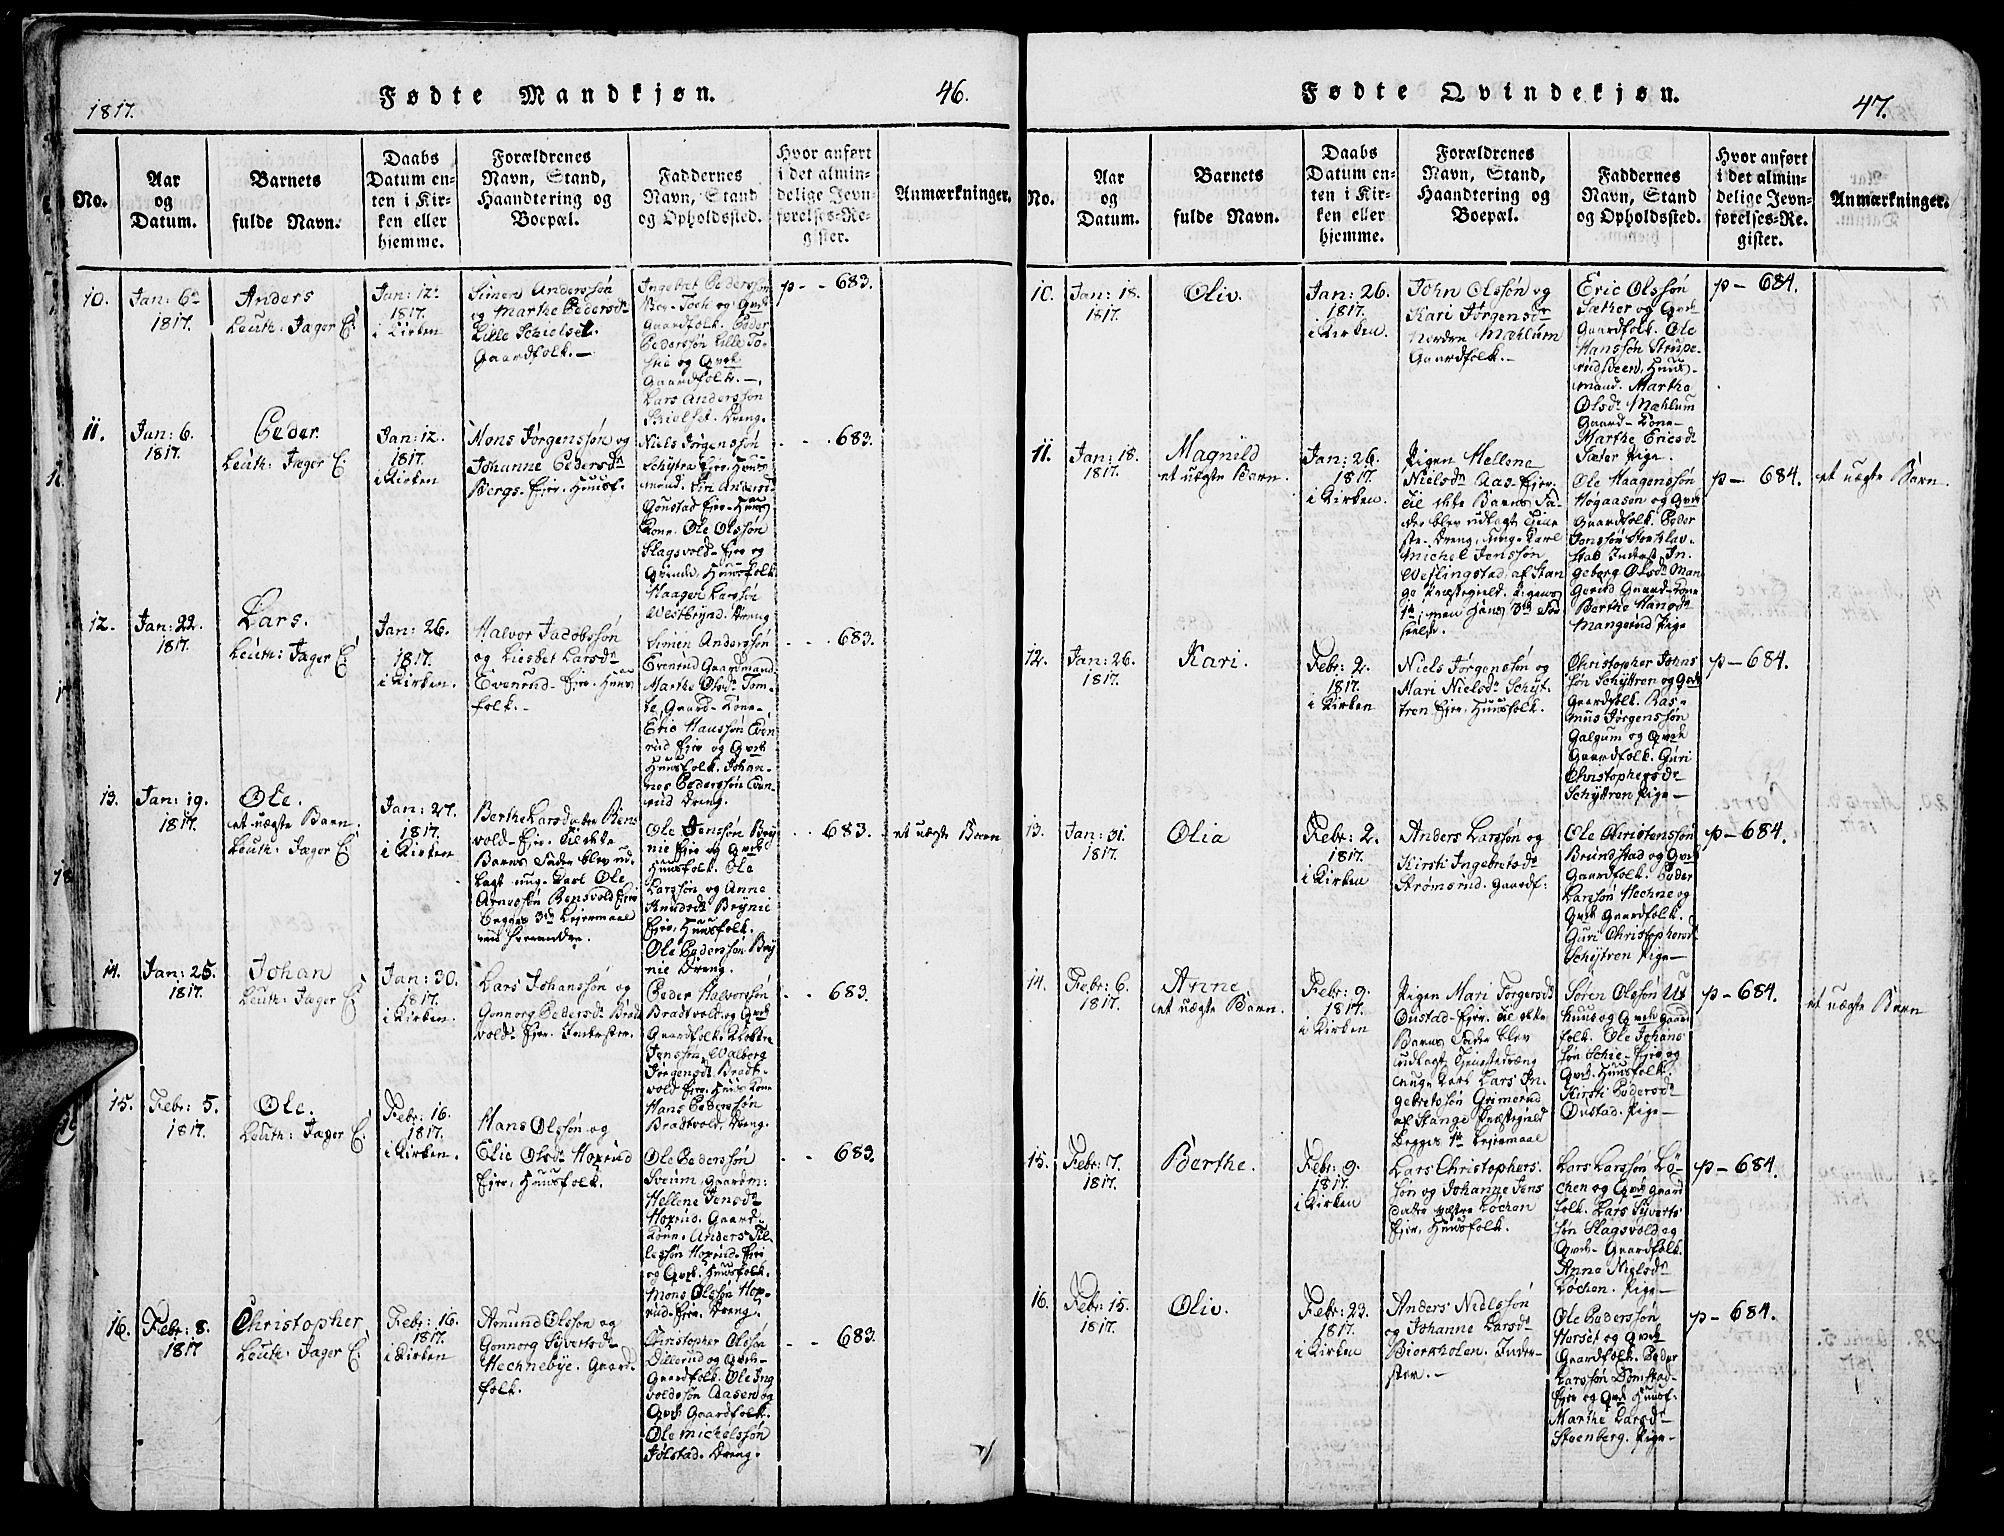 1817.
Fødte Mandkjøn.
46.
No.
Aar
og
Datum.
Barnets
fulde Navn.
Daabs
Datum en-
ten i Kir-
ken eller
hjemme.
Forældrenes
Navn, Stand,
Haandtering og
Boepæl.
Faddernes
Navn, Stand
og Opholdssted.
Hvor anført
i det almin-
delige Jevn-
førelses-Re-
gister.
Anmærkninger.
10.
Jan: 6te
1817.
Anders
Leuth: Jæger C:
Jan: 12te
1817.
i Kirken
Simen Anderssøn
og Marthe Pedersdr
Lille Schielset.
Gaardfolk.—
Ingebret Pederssøn
og Qvde
Gaardfolk. Peder
Pederssøn Lille To-
stie og Qvde
Gaardfolk.—.
Lars Anderssøn
Schielset. Dreng.
p - - 683.
11.
Jan: 6.
1817.
Peder
Leuth: Jæger C:
Jan: 12.
1817.
i Kirken
Mons Jørgenssøn og
Johanne Pedersdr
Bergs- Eier. Huusf.
Niels Jørgenssøn
Schytra Eier. Huus
mand. Siri Andersdr
Gonstad Eier- Huus
Kone. Ole Olssøn
Slagsvold- Eier og
Qvinde, Huusfolk
Haagen Larssøn
Westbrynd. Dreng
- - 683.
12.
Jan: 22.
1817.
Lars.
Leuth: Jæger C:
Jan: 26.
1817.
i Kirken.
Halvor Jacobssøn
og Liesbet Larsdr
Evenrud- Eier. Huus
folk.-
Simen Anderssøn
Evenrud Gaardmand
Marthe Olsdr Tom-
te, Gaard- Kone-
Eric Hanssøn Even
rud Eier og Qvde
Huusfolk. Johan-
nes Pederssøn Even
rud Dreng.
- - 683.
13.
Jan: 19.
1817.
Ole.
et uægte Barn.
Leuth: Jæger C:
Jan: 27.
1817.
i Kirken
Berthe Larsdatter Bens
vold- Eier. Til dette
Barns Fader blev ud
lagt ung- Karl Ole
Arnessøn Bensvold Eier
begges 3de Leiermaal
med hverandre.
Ole Jenssøn Bry
nie Eier og Qvde
Huusfolk. Ole
Larssøn og Anne
Knudsdr Brynie
Eier, Huusfolk.
Ole Pederssøn Bry
nie Dreng.
- - 683.
et uægte Barn
14.
Jan: 25.
1817.
Johan
Leuth: Jæger C:
Jan: 30.
1817.
i Kirken.
Lars Johanssøn og
Gonnorg Pedersdr Bradt
vold- Eier. Inderster.
Peder Halvorssøn
Bradtvold og Qvde
Gaardfolk.
Jenssøn, Walberg
Jørgensdr Bradt-
vold Eier. Huus Kone
Hans Pederssøn
Bradtvold. Dreng.
- - 683.
15.
Febr: 5.
1817.
Ole.
Leuth: Jæger C:
Febr: 16.
1817.
i Kirken.
Hans Olssøn og
Elie Olsdr Hoxrud
Eier, Huusfolk.
Ole Pederssøn
Sveum, Gaardm:
Hellene Jensdr
Hoxrud. Gaard-
Kone. Anders Til-
lefssøn Hoxrud. Eier
og Qvde. Huusfolk.
Mons Olssøn Hox-
rud- Eier. Dreng.
- - 683.
16.
Febr: 8.
1817
Christopher
Leuth: Jæger C:
Febr: 16.
1817.
i Kirken
Amund Olssøn og
Gonnorg Syvertsdr
Hechnebye. Gaard
folk.
Christopher Olssøn
Dillerud og Qvde-
Gaardfolk. Ole Ing
voldssøn Aasen og
Qvde Gaardfolk.
Ole Michelssøn
Jølstad. Dreng.
- - 683.
Fødte Qvindekjøn.
47.
No.
Aar
og
Datum.
Barnets
fulde Navn.
Daabs
Datum en-
ten i Kir-
ken eller
hjemme.
Forældrenes
Navn, Stand,
Haandtering og
Boepæl.
Faddernes
Navn, Stand
og Opholdssted.
Hvor anført
i det almin-
delige Jevn-
førelses-Re-
gister.
Anmærkninger.
10.
Jan: 18.
1817.
Oliv.
Jan: 26.
1817.
i Kirken.
John Olssøn og
Kari Jørgensdr
Nordre Mæhlum
Gaardfolk.-
Eric Olssøn
Sæther og Qvde
Gaardfolk. Ole
Hanssøn Strupe-
rudsveen, Huus-
mand. Marthe
Olsdr Mæhlum
Gaard- Kone-
Marthe Ericsdr
Sæter Pige.
p - 684.
11.
Jan: 18.
1817.
Magnild
et uægte Barn.
Jan: 26.
1817.
i Kirken.
Pigen Hellene
Nielsdr Aas- Eier.
Til dette Barns Fa-
der blev udlagt Tiene
ste- Dreng, ung- Karl
Michel Jenssøn
Weslingstad, af Stan
ge Præstegield. Pigens
1te men Hans 3de For
seelse.
Ole Haagenssøn
Hogaasen og Qvde
Gaardfolk. Peder
Jonssøn
Inderst. In-
geborg Olsdr Man
gerud Gaard- Kone
Berthe Hansdr
Mangerud Pige
p - 684.
et uægte Barn.
12.
Jan: 26.
1817.
Kari.
Febr: 2.
1817.
i Kirken
Niels Jørgenssøn og
Mari Nielsdr Schyt-
tren Eier. Huusfolk.
Christopher Johns
søn Schyttren og Qvde
Gaardfolk. Ras-
mus Jørgenssøn
Galgum og Qvde
Gaardfolk. Guri
Christophersdr
Schyttren Pige-
p - 684.
13.
Jan: 31.
1817.
Olia
Febr: 2.
1817.
i Kirken
Anders Larssøn og
Kirsti Ingebretsdr
Strømsrud. Gaardf:
Ole Christenssøn
Brundstad og Qvde
Gaardfolk. Peder
Larssøn Hechne og
Qvde Gaardfolk.
Guri Christophersdr
Schyttren Pige-
p - 684.
14.
Febr: 6.
1817.
Anne
et uægte Barn.
Febr: 9.
1817.
i Kirken
Pigen Mari Torgersdr
Onstad- Eier. Til dette
Barns Fader blev
udlagt Tienestedræng
unge Karl Lars In-
gebretssøn Grimerud
af Stange Præstegield
begges 1te Leiermaal
Søren Olssøn Ut
huus og Qvde Gaard
folk. Ole Johans
søn Schie- Eier og
Qvde. Huusfolk.
Kirsti Pedersdr
Onstad. Pige-
p - 684.
et uægte Barn
15.
Febr: 7.
1817.
Berthe.
Febr: 9.
1817.
i Kirken
Lars Christophers-
søn og Johanne Jens
datter Løchen
Eier, Huusfolk.
Lars Larssøn Lø-
chen og Qvde Gaard
folk. Lars Syverts
søn Slagsvold og
Qvde- Gaardfolk.
Anne Nielsdr
Løchen. Pige-
p - 684.
16.
Febr: 15.
1817.
Oliv.
Febr: 23.
1817.
i Kirken
Anders Nielssøn
og Johanne Larsdr
Biorkholen. Inder-
ster.-
Ole Pederssøn
Horset og Qvde
Gaardfolk. Peder
Larssøn Domstad-
Eier og Qvde Huusf.
Marthe Larsdr
Steenberg. Pige-
p - 684.